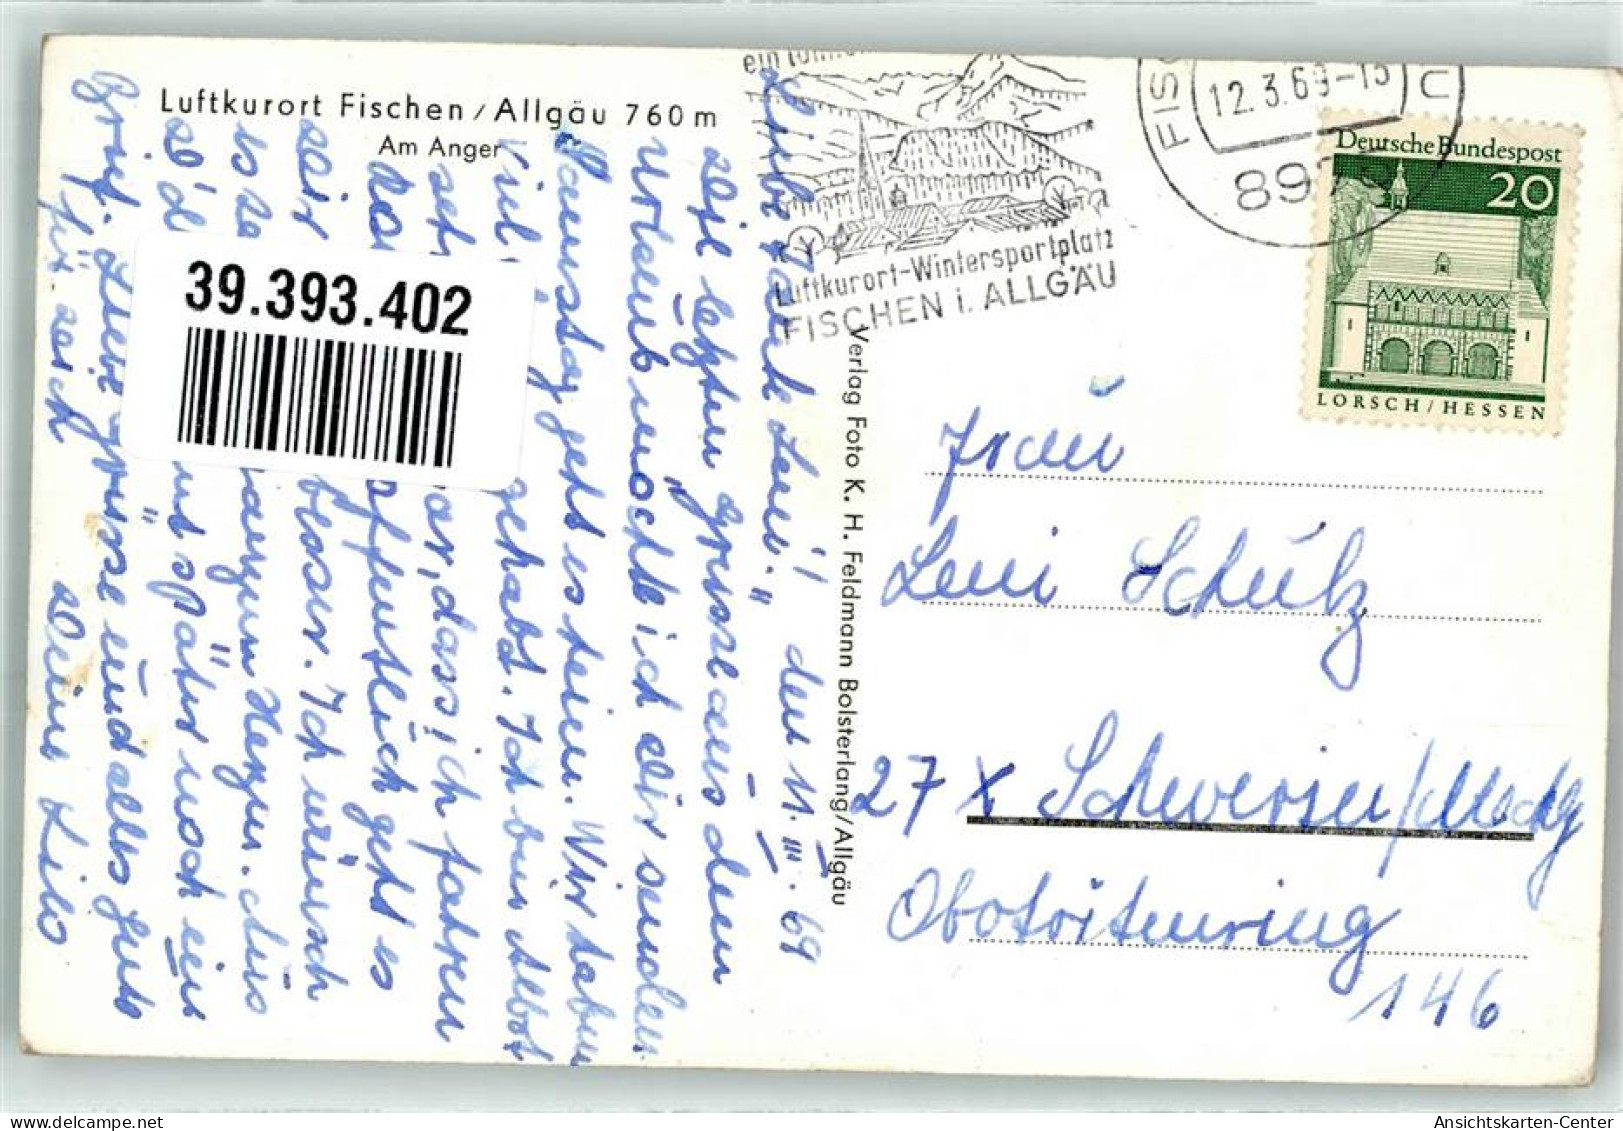 Luftkurort Fischen / Allgäu 760 m
Am Anger
39.393.402
Luftkurort-Wintersportplatz
FISCHEN i. ALLGÄU
12.3.69-15
897
Deutsche Bundespost
20
LORSCH / HESSEN
Verlag Foto K. H. Feldmann Bolsterlang/Allgäu
Liebe Leni! den 11. III. 69
letzten Grüsse aus dem
Urlaub möchte ich dir senden.
Samstag geht es heim. Wir haben
viel gehabt. Ich bin selbst
dass ich fahren
Hoffentlich geht es
dir besser. Ich wünsch
es von ganzem Herzen. Aus
später noch ein
Brief. Liebe Grüsse und alles Gute
für dich Deine Lilo
Frau
Leni Schütz
27 X Schwerin/Meckl
Obotritenring
146
Ansichtskarten-Center